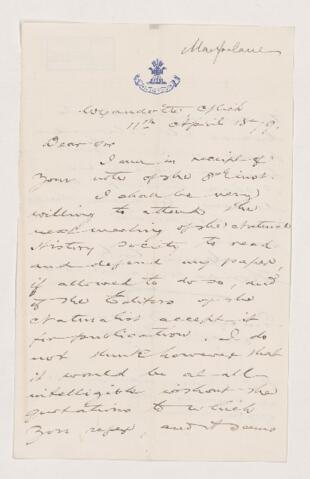 Macfarlane
Wyandotte Mich
11th April 1879
Dear Sir
I am in receipt of
your note of the 8th inst.
I shall be very
willing to attend the
next meeting of the Natural
History Society to read
and defend my paper,
if allowed to do so, and
if the Editors of the
Naturalist accept it
for publication. I do
not think however that
it would be at all
intelligible without the
quotations to which
you refer, and it seems